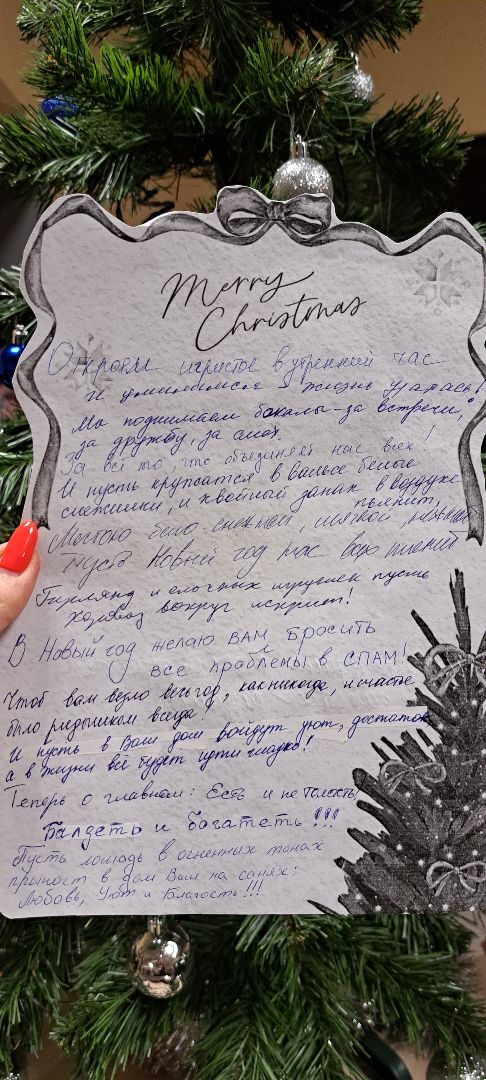 Merry
Christmas
Откроем игристое в утренний час
и умилимся - жизнь удалась!
Мы поднимаем бокалы - за встречи,
за дружбу, за смех.
За всё то, что объединяет нас всех!
И пусть кружатся в вальсе белые
снежинки, и хвойный запах в воздухе
пьянит,
бело снежной, мягкой,
Пусть Новый год нас всю
Гирлянд и елочных игрушек пусть
хоровод вокруг искрит!
В Новый год желаю Вам Бросить
все проблемы в СПАМ!
Чтоб вам везло весь год, как никогда, и счастье
было рядышком всегда!
И пусть в Ваш дом войдут уют, достаток
а в жизни всё будет идти гладко!
Теперь о главном: Есть и не Толстеть
Балдеть и богатеть!!!
Пусть лошадь в огненных тонах
приност в дом Вам на санях:
Любовь, Уют и Благость!!!